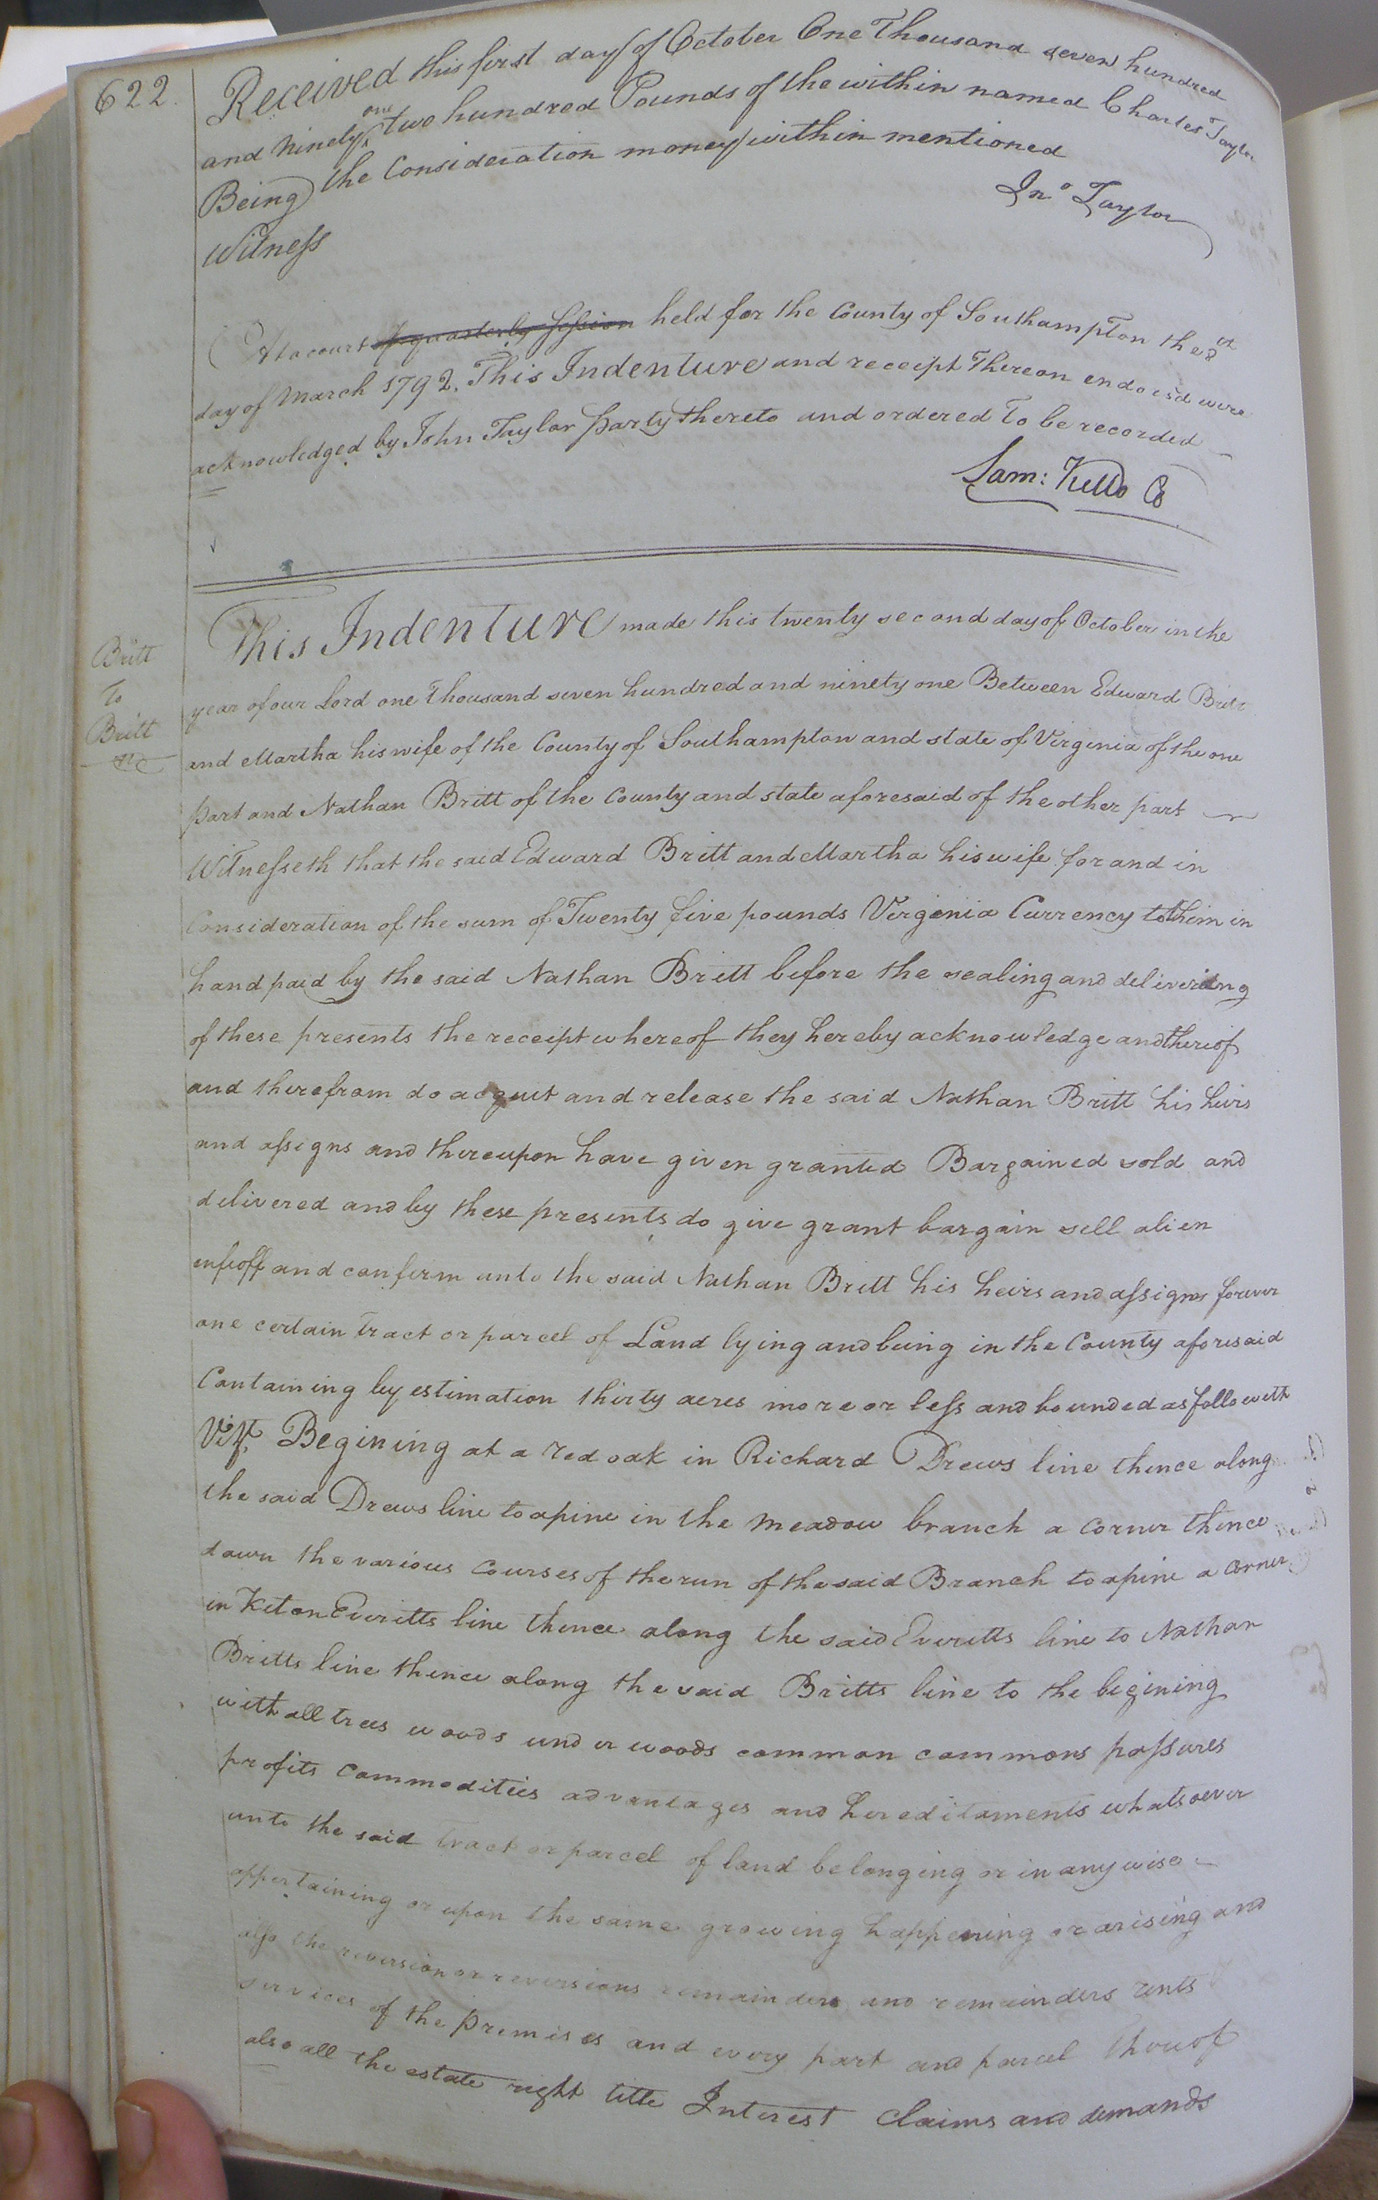 622.
Received this first day of October One Thousand seven hundred
and Ninety one two hundred Pounds of the within named Charles Taylor
Being the Consideration money within mentioned
Jno Taylor
Witness
At a court of quarterly Session held for the County of Southampton the
day of March 1792. This Indenture and receipt Thereon endorsd were
acknowledged by John Taylor party thereto and ordered To be recorded
Sam: Kello
Britt
To
Britt
This Indenture made this twenty second day of October in the
year of our Lord one Thousand seven hundred and ninety one Between Edward Britt
and Martha his wife of the County of Southampton and state of Virginia of the one
part and Nathan Britt of the County and state aforesaid of the other part
Witnesseth that the said Edward Britt and Martha his wife for and in
Consideration of the sum of Twenty five pounds Virginia Currency to them in
hand paid by the said Nathan Britt before the sealing and delivering
of these presents the receipt whereof they hereby acknowledge and thereof
and therefrom do acquit and release the said Nathan Britt his heirs
and assigns and thereupon have given granted Bargained sold and
delivered and by these presents do give grant bargain sell alien
infeoff and confirm unto the said Nathan Britt his heirs and assigns forever
one certain tract or parcel of Land lying and being in the County aforesaid
Containing by estimation thirty acres more or less and bounded as followeth
Vizt. Begining at a red oak in Richard Drews line thence along
the said Drews line to a pine in the meadow branch a corner thence
down the various Courses of the run of the said Branch to a pine a corner
in Keton Everitts line thence along the said Everitts line to Nathan
Britts line thence along the said Britts line to the begining
with all trees woods under woods common commons passures
profits commodities advantages and hereditaments whatsoever
unto the said tract or parcel of land belonging or in any wise
appertaining or upon the same growing happening or arising and
also the reversion or reversions remainders and remainders rents
services of the premises and every part and parcel thereof
also all the estate right title Interest claims and demands